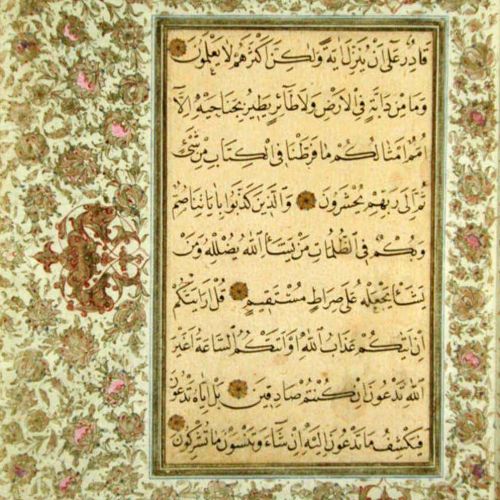 قَادِرٌ عَلَى أَنْ يُنَزِّلَ آيَةً وَلَكِنَّ أَكْثَرَهُمْ لَا يَعْلَمُونَ
وَمَا مِنْ دَابَّةٍ فِي الْأَرْضِ وَلَا طَائِرٍ يَطِيرُ بِجَنَاحَيْهِ إِلَّا
أُمَمٌ أَمْثَالُكُمْ مَا فَرَّطْنَا فِي الْكِتَابِ مِنْ شَيْءٍ
ثُمَّ إِلَى رَبِّهِمْ يُحْشَرُونَ وَالَّذِينَ كَذَّبُوا بِآيَاتِنَا صُمٌّ
وَبُكْمٌ فِي الظُّلُمَاتِ مَنْ يَشَأِ اللَّهُ يُضْلِلْهُ وَمَنْ
يَشَأْ يَجْعَلْهُ عَلَى صِرَاطٍ مُسْتَقِيمٍ قُلْ أَرَأَيْتَكُمْ
إِنْ أَتَاكُمْ عَذَابُ اللَّهِ أَوْ أَتَتْكُمُ السَّاعَةُ أَغَيْرَ
اللَّهِ تَدْعُونَ إِنْ كُنْتُمْ صَادِقِينَ بَلْ إِيَّاهُ تَدْعُونَ
فَيَكْشِفُ مَا تَدْعُونَ إِلَيْهِ إِنْ شَاءَ وَتَنْسَوْنَ مَا تُشْرِكُونَ